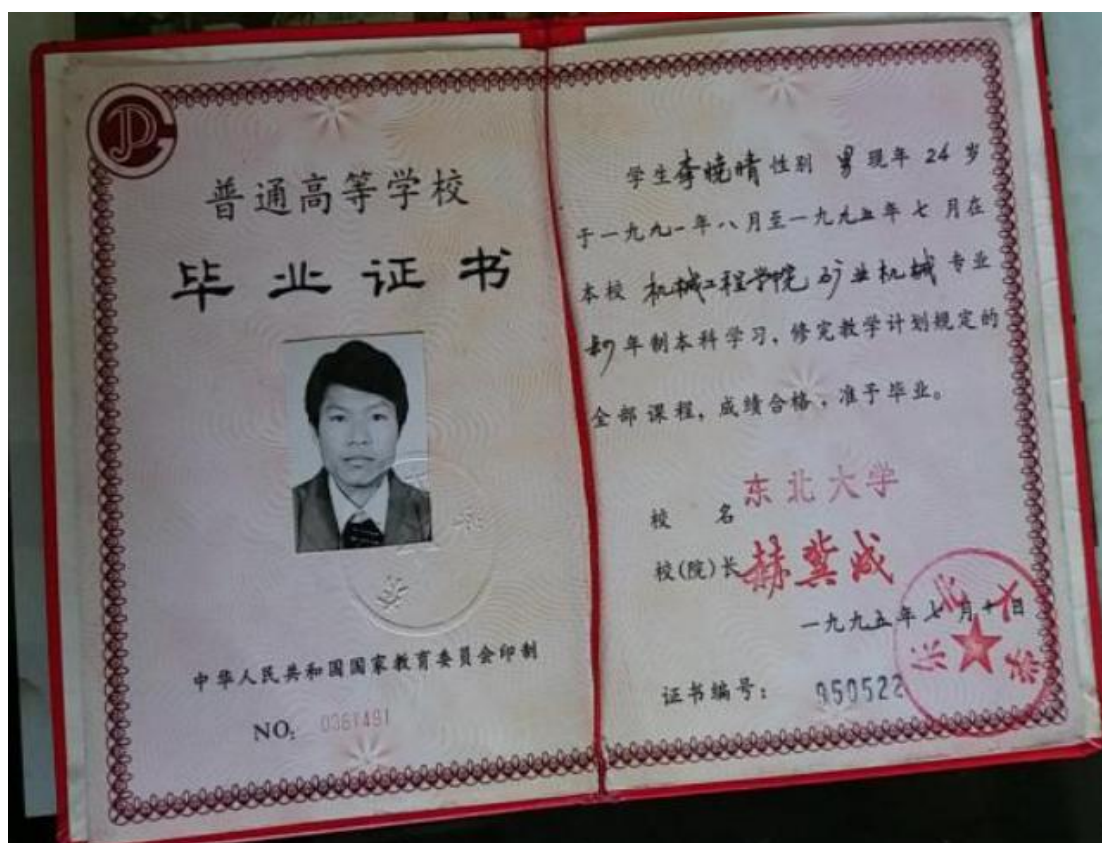 普通高等学校
毕业证书
中华人民共和国国家教育委员会印制
NO: 0361491
学生李晓晴性别 男 现年 24 岁
于一九九一年八月至一九九五年七月在
本校 机械工程学院 矿业机械 专业
四年制本科学习，修完教学计划规定的
全部课程，成绩合格，准予毕业。
校 名 东北大学
校(院)长 赫冀成
一九九五年七月十日
证书编号： 950522
东北大学